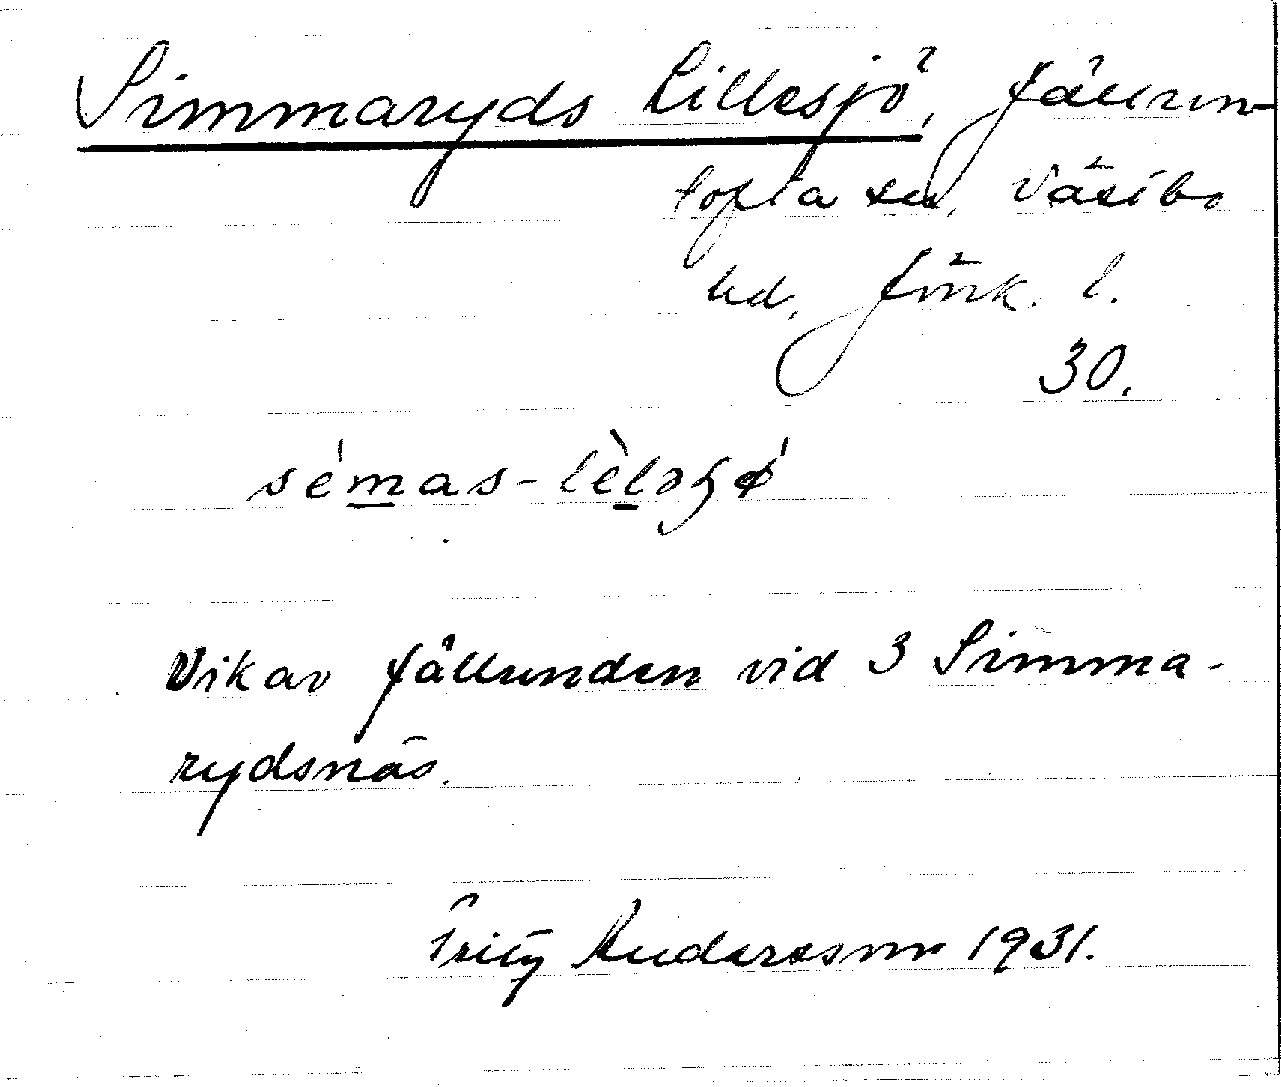 Simmaryds Lillesjö, Fållun-
torpa sn, Västbo
hd, Jönk. l.
30.
sémas-lèləʂø
Vik av Fållunden vid 3 Simma-
rydsnäs.
Fritz Andersson 1931.